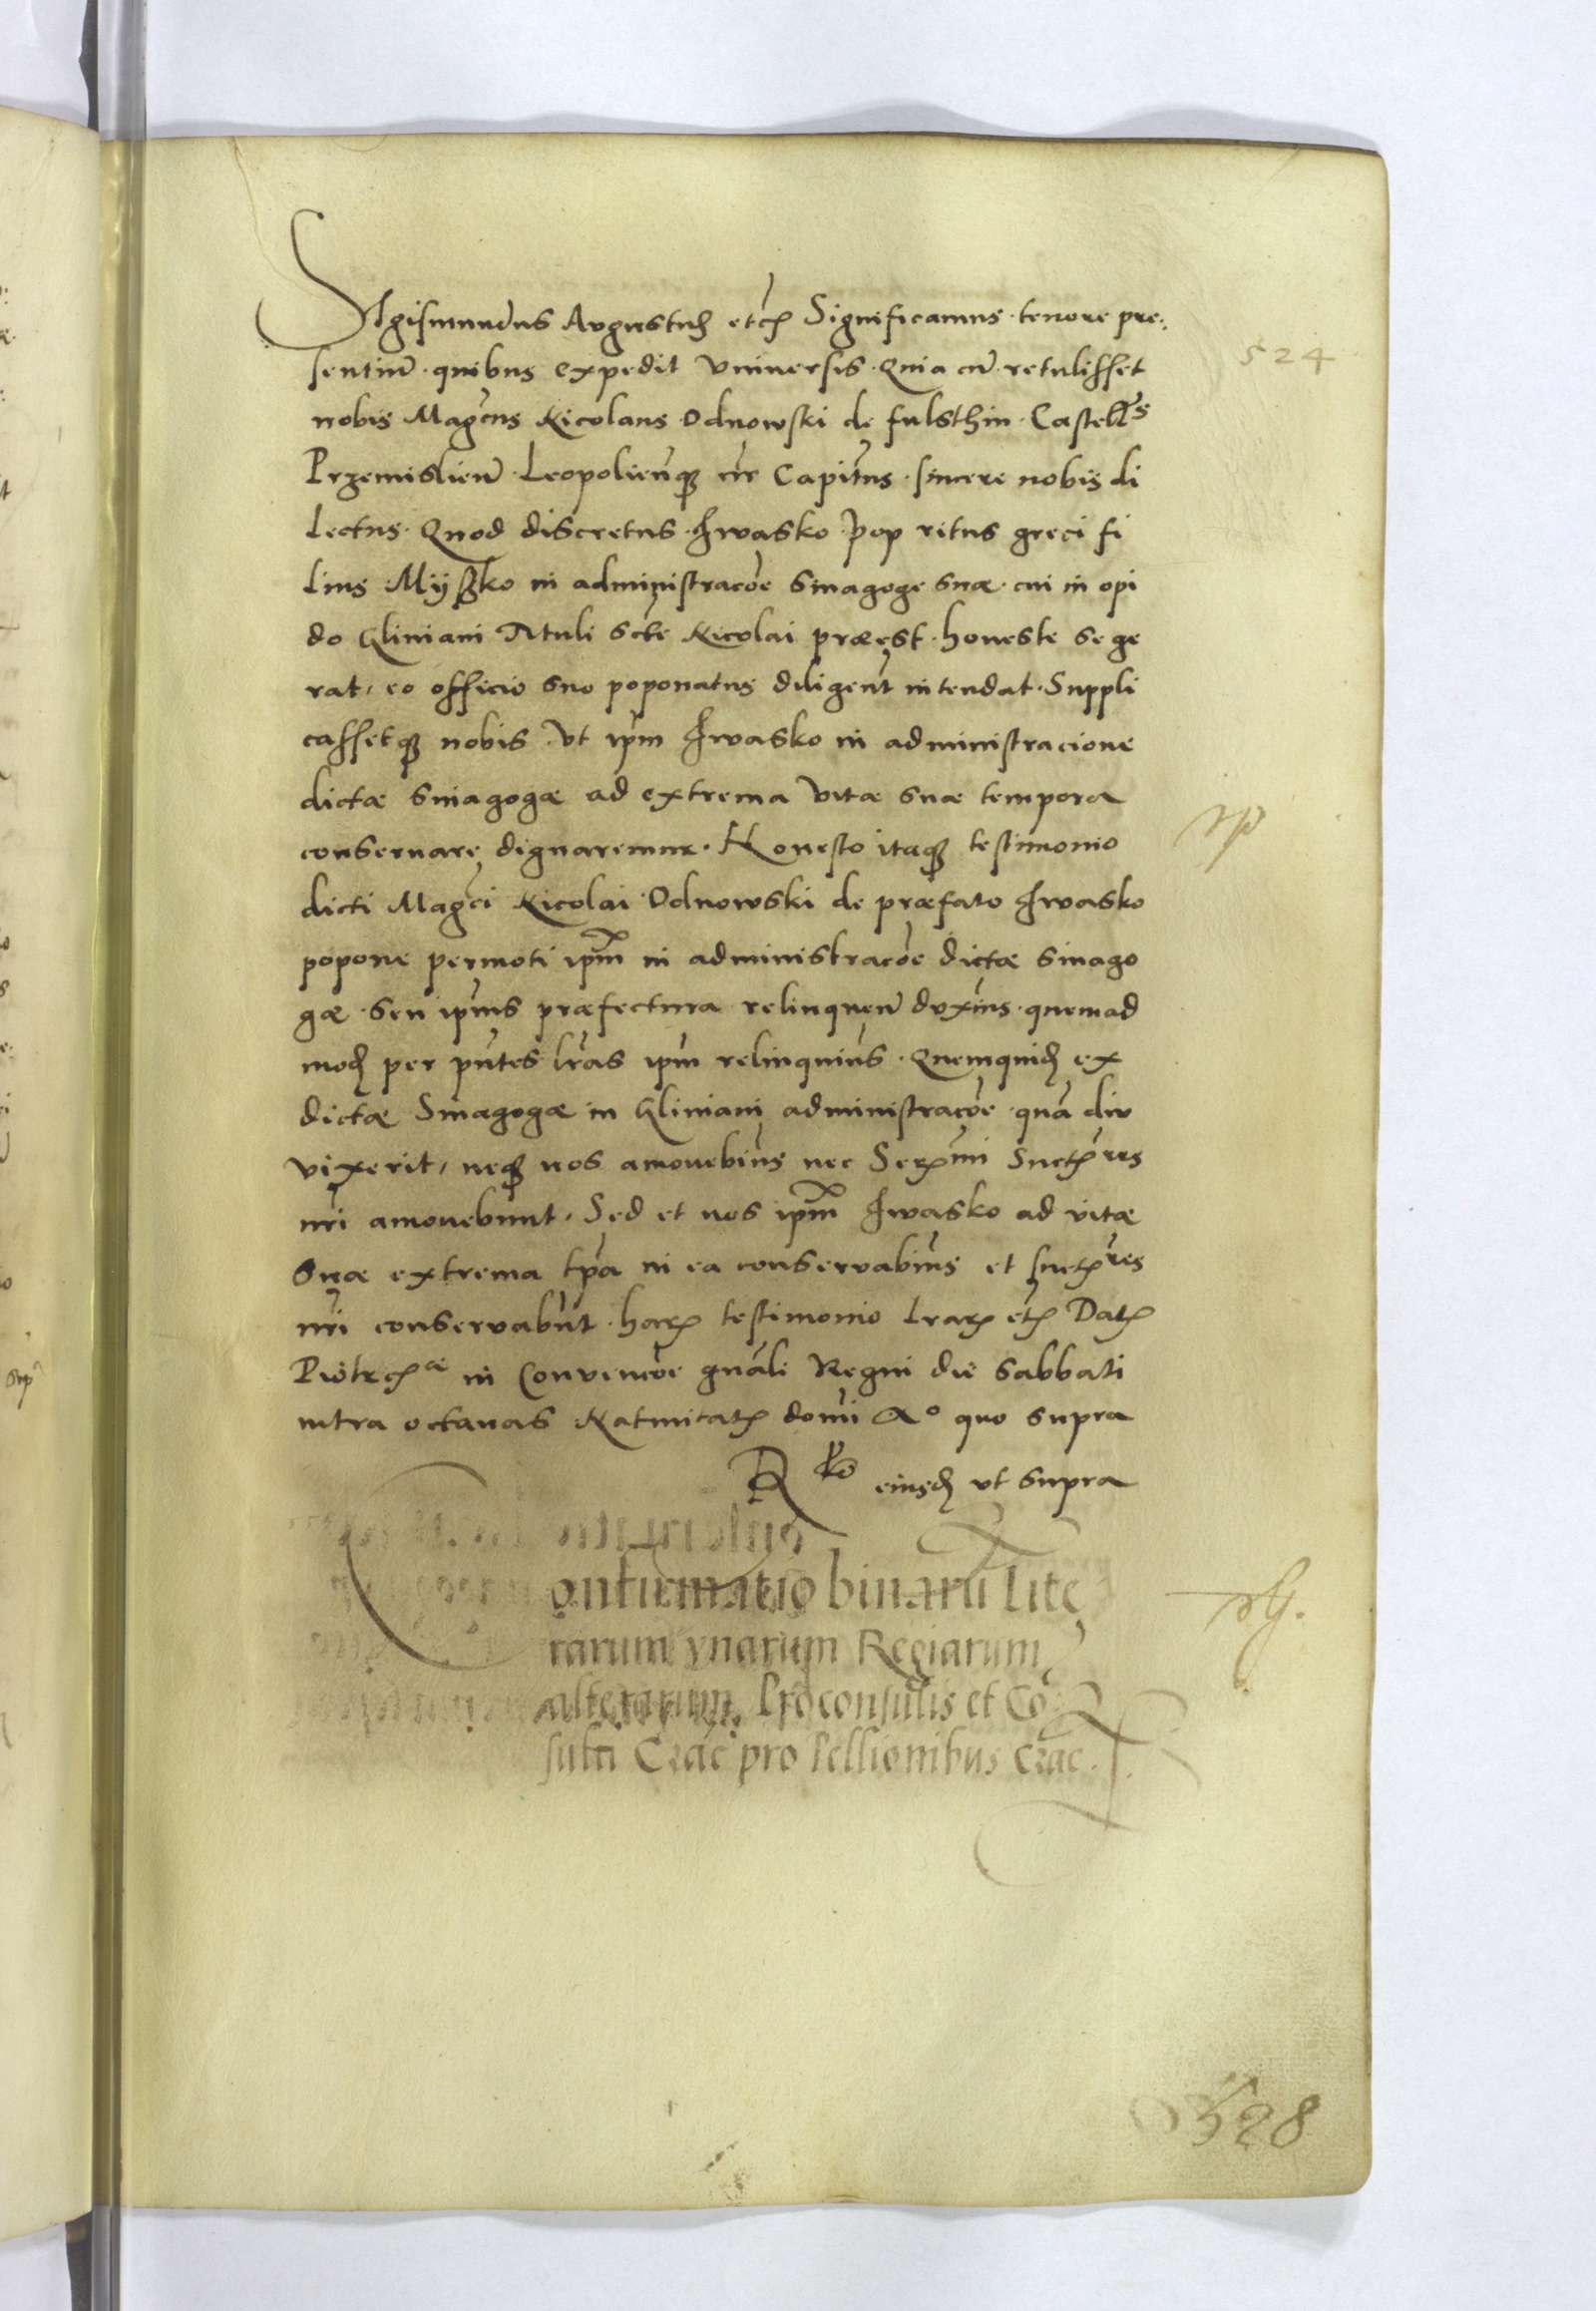 Sigismundus Augustus etc Significamus tenore pre
sentiu quibus expedit universis Quia cu retulisset
nobis Magcus Nicolaus Odnowski de fulsthin Castells
Przemislien Leopolienq cr Capitus sincere nobis di
lectus Quod discretus Iwasko pop ritus greci fi
lius Mysko in administracoe sinagoge suæ cui in opi
do Gliniani Tituli scte Nicolai præest honeste se ge
rat, eo officio suo poponatus diligent intendat Suppli
cassetq nobis Ut ipm Iwasko in administracione
dictæ sinagogæ ad extrema vitæ suæ tempora
conservare dignaremur. Honesto itaq testimonio
dicti Magci Nicolai Odnowski de præfato Iwasko
popone permoti ipm in administracoe dictæ sinago
gæ seu ipius præfectura relinquen duximus quemad
mod per pntes lras ipm relinquius Quemquid ex
dictæ Sinagogæ in Gliniani administracoe qua diu
vixerit, neq nos amovebius nec Sermi Suctres
nri amovebunt, Sed et nos ipm Iwasko ad vitæ
suæ extrema tpa in ea conservabius et suctres
nri conservabut har testimonio lrar etc Dat
Piotrcæ in Convencoe gnali Regni die sabbati
intra octavas Natiitat domi Ao quo supra
Rlo eiusd ut supra
Confirmatio binaru lite
rarum ynarum Regiarum
alterarum Proconsulis et Co
sulu Crac pro Pellionibus Crac.
524
528